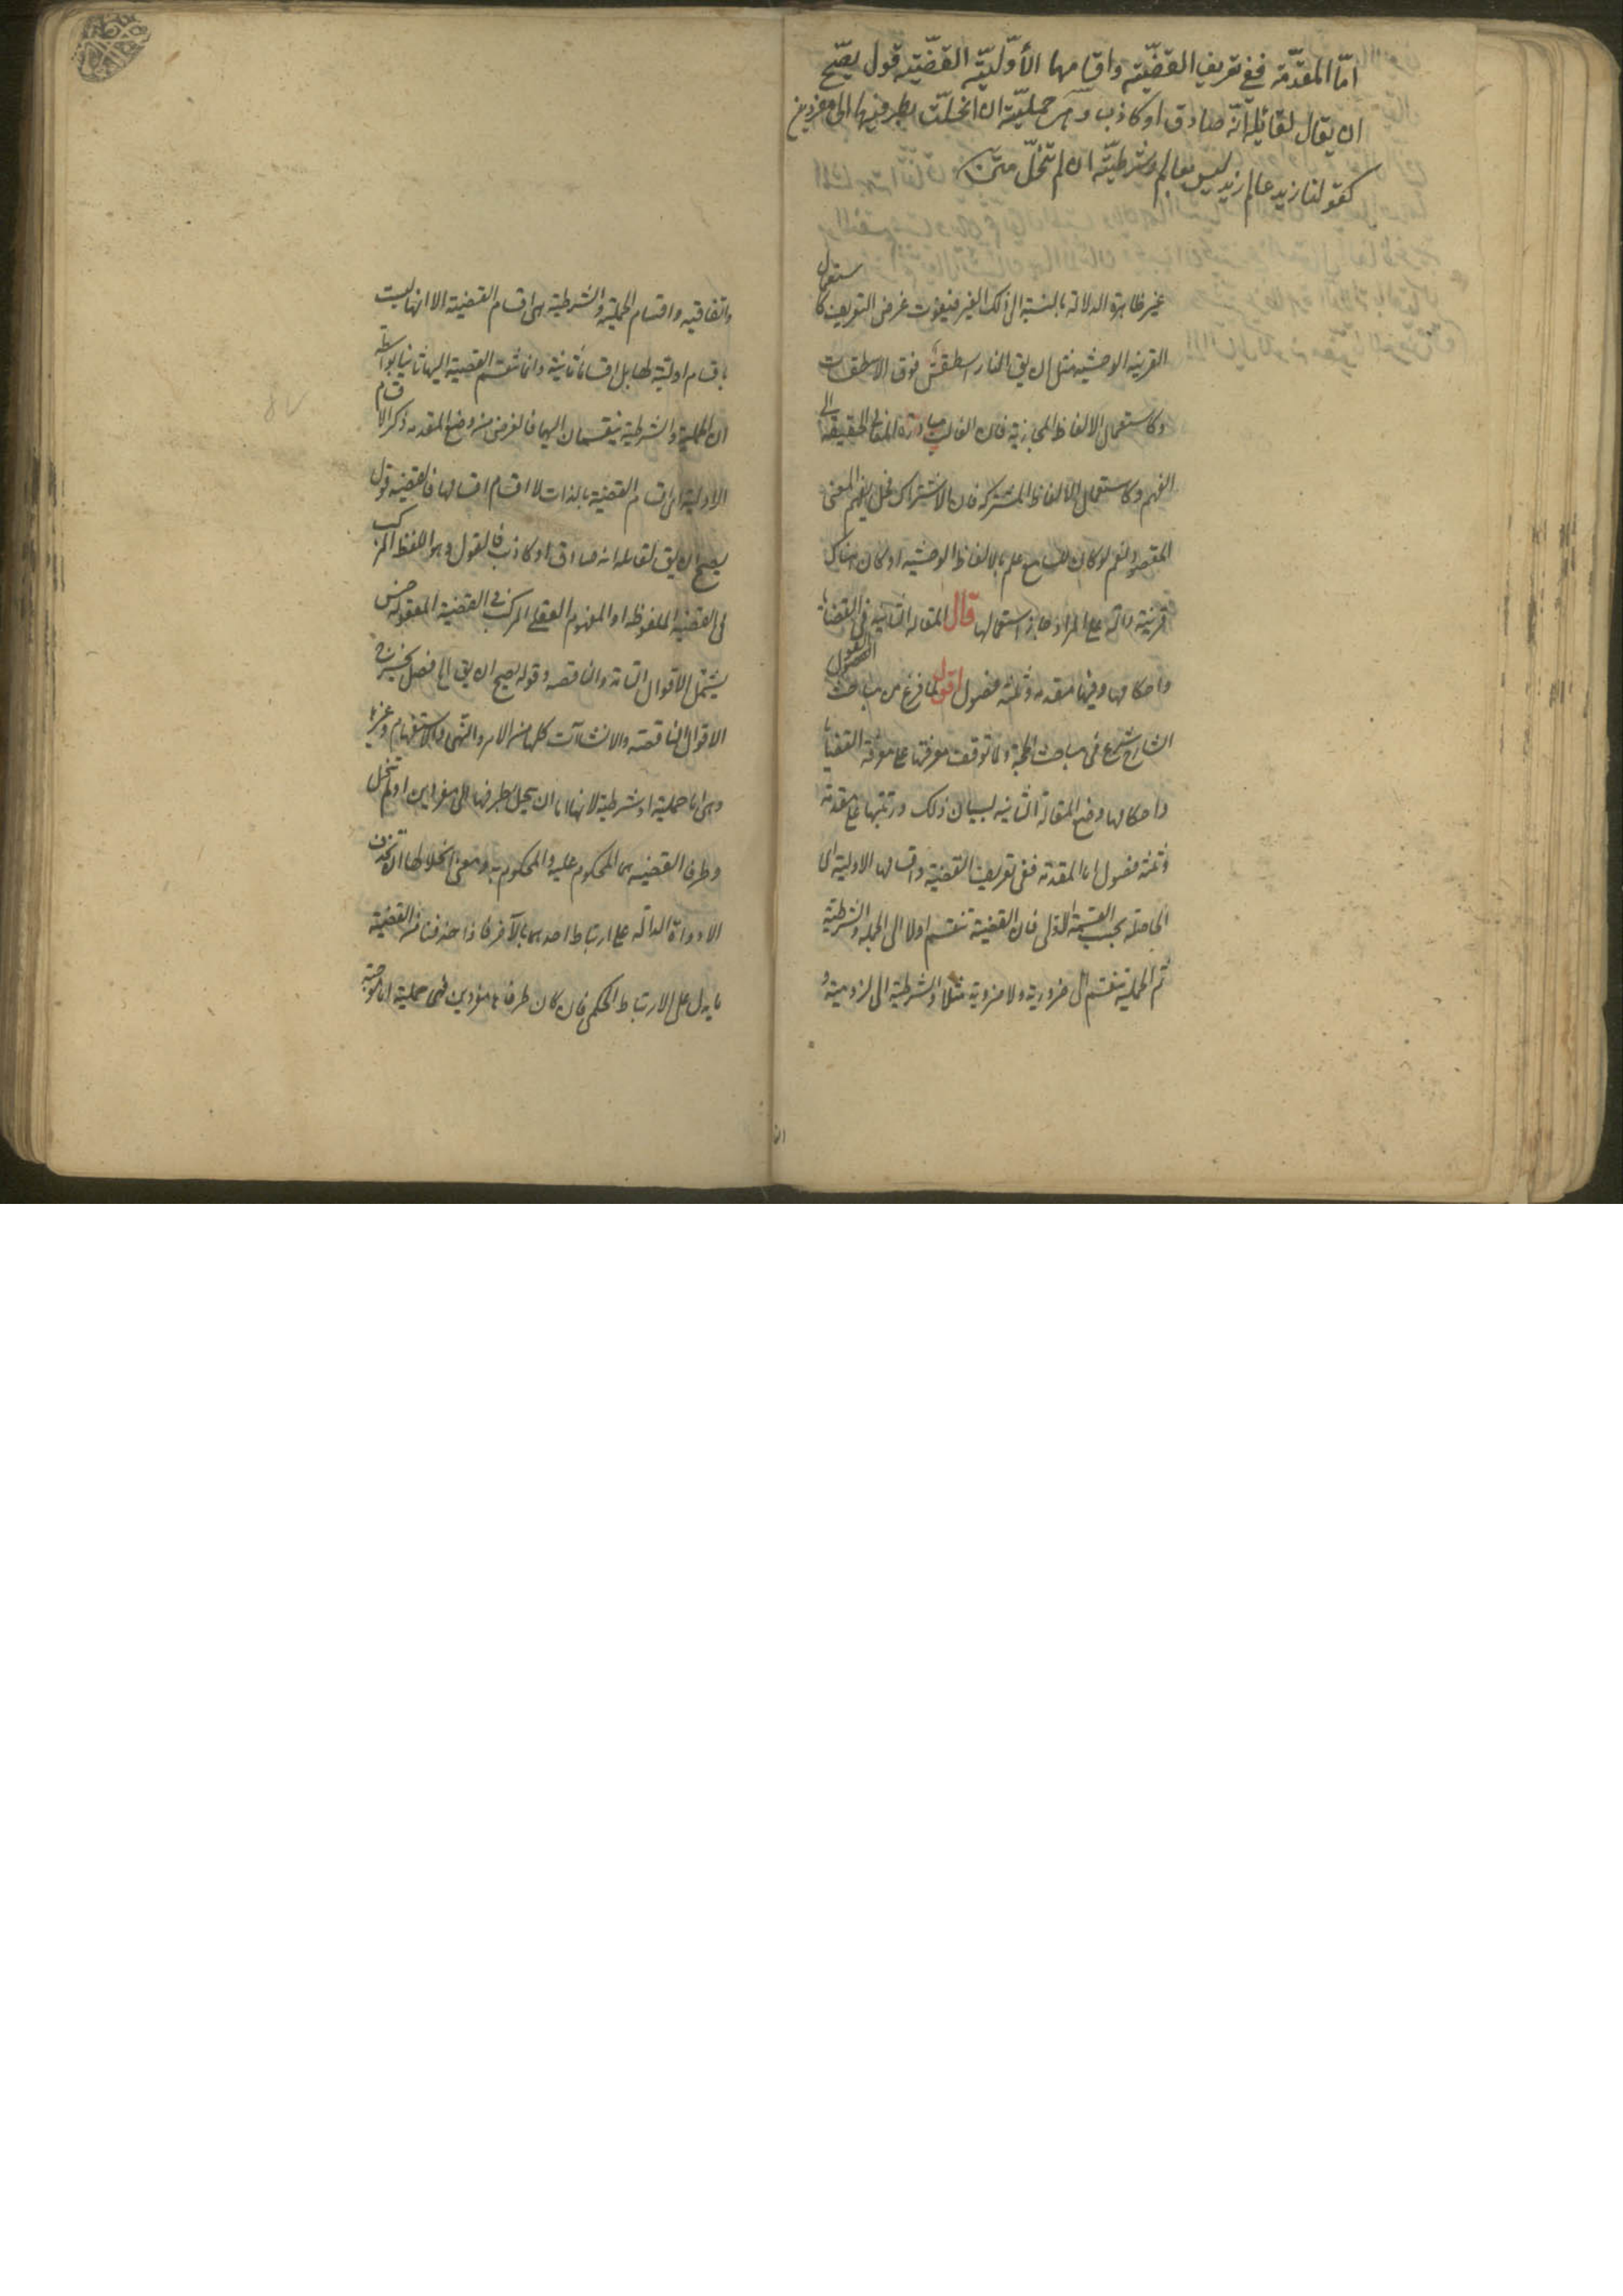 امّا المقدّمة ففى تعريف القضّية واقسامها الأوّليّة القضّية قول يصّح
ان يقال لقائله انّه صادق او كاذب وهى حمليّة ان انحلّت بطرفيها الى مفردين
كقولنا زيد عالم زيد ليس بعالم وشرطيّة ان لم تنحلّ
غير ظاهرة الدلالة بالنسبة الى ذلك الغير فيفوت غرض التعريف كاستعمال
الغريبه الوحشية مثل ان يق النار اسطقس فوق الاسطقسات
وكاستعمال الالفاظ المجازية فان الغالب مبادرة المعانى الحقيقة الى
الفهم وكاستعمال الالفاظ المشتركة فان الاشتراك مخل بفهم المعنى
المقصود نعم لو كان للسامع علم بالالفاظ الوحشية او كان هناك
قرينة دالة على المراد جاز استعمالها قال المقالة الثانية فى القضايا
واحكامها وفيها مقدمه وثلثة فصول اقول لما فرغ من مباحث القول
الشارح شرع فى مباحث الحجة ولما توقفت معرفتها على معرفة القضايا
واحكامها وضع المقالة الثانية لبيان ذلك ورتبها على مقدمة
وثلثة فصول اما المقدمة ففى تعريف القضية واقسامها الاولية اى
الحاصلة بحسب القسمة الاولى فان القضية تنقسم اولا الى الحملية والشرطية
ثم الحملية تنقسم الى ضرورية ولا ضرورية مثلا والشرطية الى لزومية و
واتفاقيه واقسام الحملية والشرطية هى اقسام القضية الا انها ليست
باقسام اولية لها بل اقسام ثانية وانما تنقسم القضية اليها ثانيا بواسطة
ان الحملية والشرطية ينقسمان اليها فالغرض من وضع المقدمه ذكر الاقسام
الاولية اى اقسام القضية بالذات لا اقسام اقسامها فالقضية قول
يصح ان يق لقائله انه صادق او كاذب فالقول وهو اللفظ المركب
فى القضية الملفوظة او المفهوم العقلى المركب فى القضية المعقولة جنس
يشتمل الاقوال التامة والناقصه وقوله يصح ان يق الخ فصل يخرج
الاقوال الناقصة والانشاآت كلها من الامر والنهى والاستفهام وغيرها
وهى اما حملية او شرطية لانها اما ان ينحل بطرفيها الى مفردين او لم تنحل
وطرفا القضية هما المحكوم عليه والمحكوم به ومعنى انحلالها ان تحذف
الادواة الدالة على ارتباط احدهما بالآخر فاذا حذفنا من القضية
ما يدل على الارتباط الحكمى فان كان طرفاها مفردين فهى حملية اما موجبة